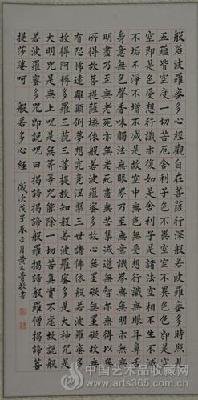 般若波羅蜜多心經觀自在菩薩行深般若波羅蜜多時照見
五蘊皆空度一切苦厄舍利子色不異空空不異色色即是
空空即是色受想行識亦復如是舍利子是諸法空相不生不滅不
垢不淨不增不減是故空中無色無受想行識無眼耳鼻舌
身意無色聲香味觸法無眼界乃至無意識界無無明亦無無
明盡乃至無老死亦無老死盡無苦集滅道無智亦無得以無
所得故菩提薩埵依般若波羅蜜多故心無罣礙無罣礙故無
有恐怖遠離顛倒夢想究竟涅槃三世諸佛依般若波羅蜜多
故得阿耨多羅三藐三菩提故知般若波羅蜜多是大神咒是
大明咒是無上咒是無等等咒能除一切苦真實不虛故說般
若波羅蜜多咒即說咒曰揭諦揭諦般羅揭諦般羅僧揭諦菩
提莎婆呵 般若多心經 歲次戊子春二月黃敬書
中国艺术品收藏网